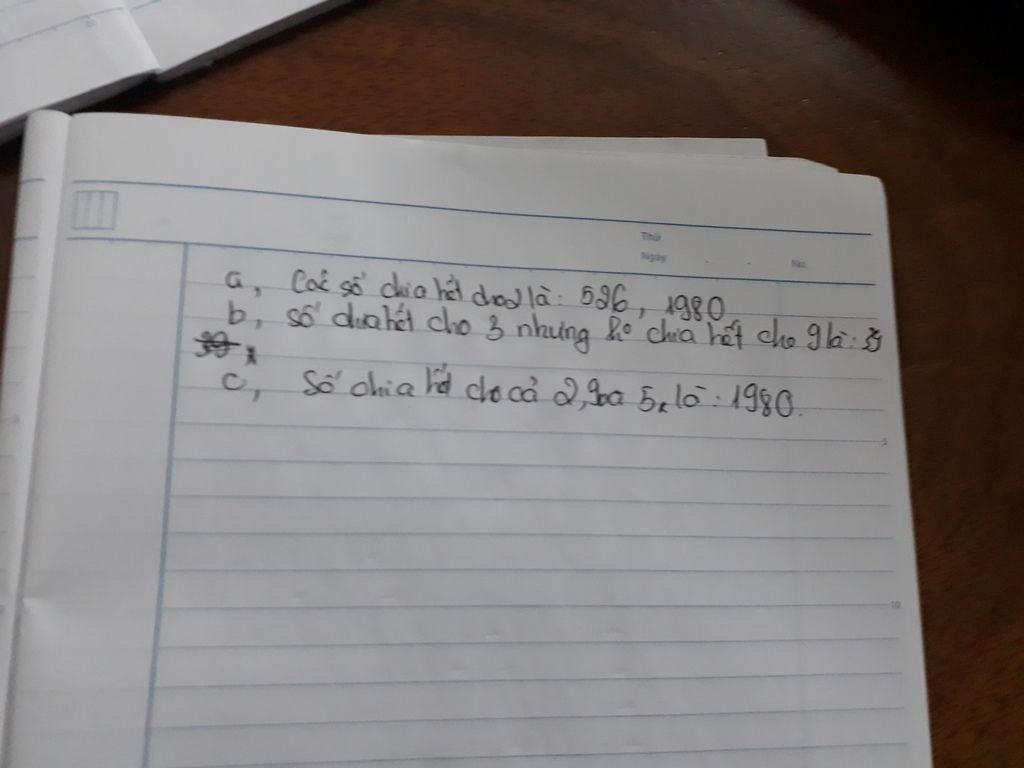 Thứ
Ngày No.
a, Các số chia hết cho 2 là: 526, 1980
b, số chia hết cho 3 nhưng ko chia hết cho 9 là: 39
c, Số chia hết cho cả 2, 9 và 5 là: 1980.
5
10